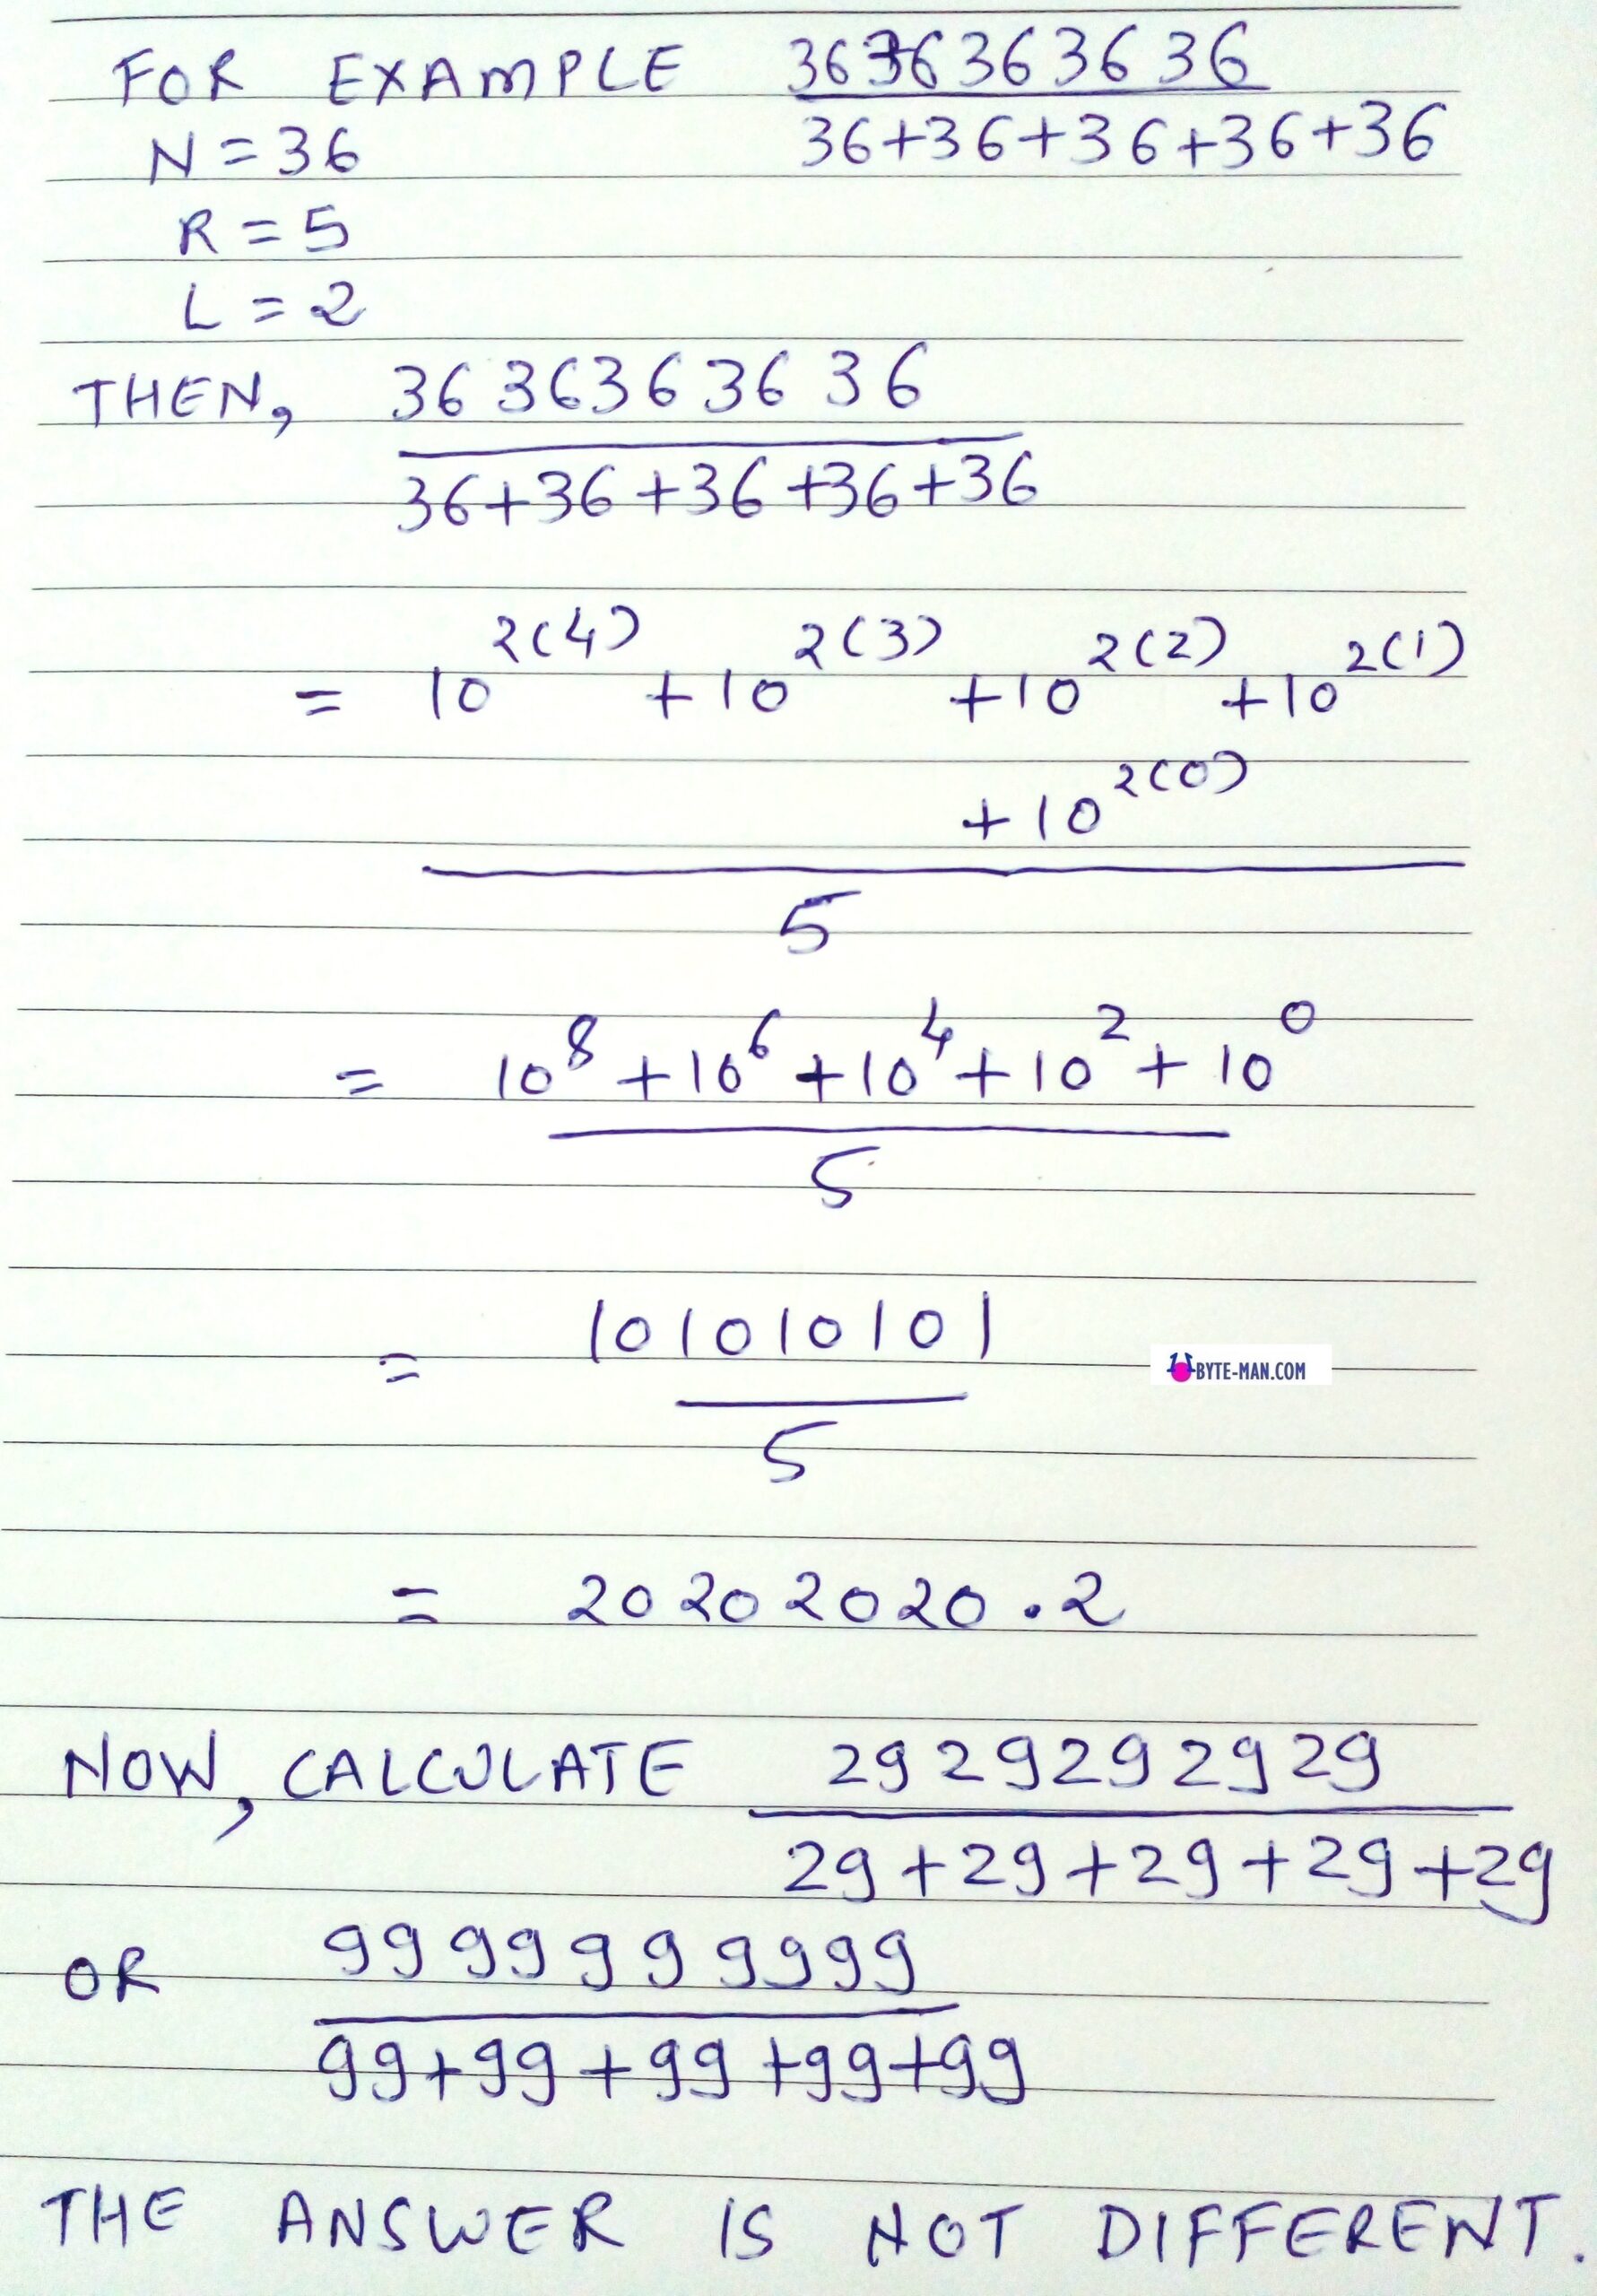 FOR EXAMPLE 3636363636
36+36+36+36+36
N=36
R=5
L=2
THEN, 3636363636
36+36+36+36+36
= 10^2(4) +10^2(3) +10^2(2) +10^2(1)
+10^2(0)
5
= 10^8 +10^6 +10^4 +10^2 + 10^0
5
= 101010101
5
BYTE-MAN.COM
= 20202020.2
NOW, CALCULATE 2929292929
29+29+29+29+29
OR 9999999999
99+99+99+99+99
THE ANSWER IS NOT DIFFERENT.